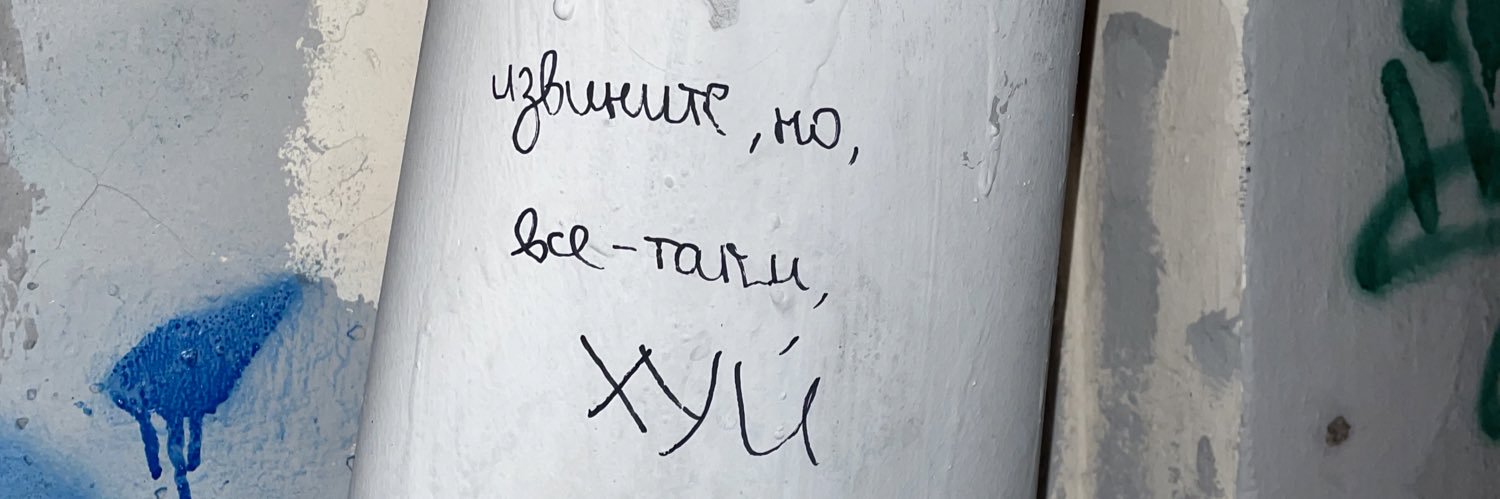 извините, но,
все-таки,
ХУЙ